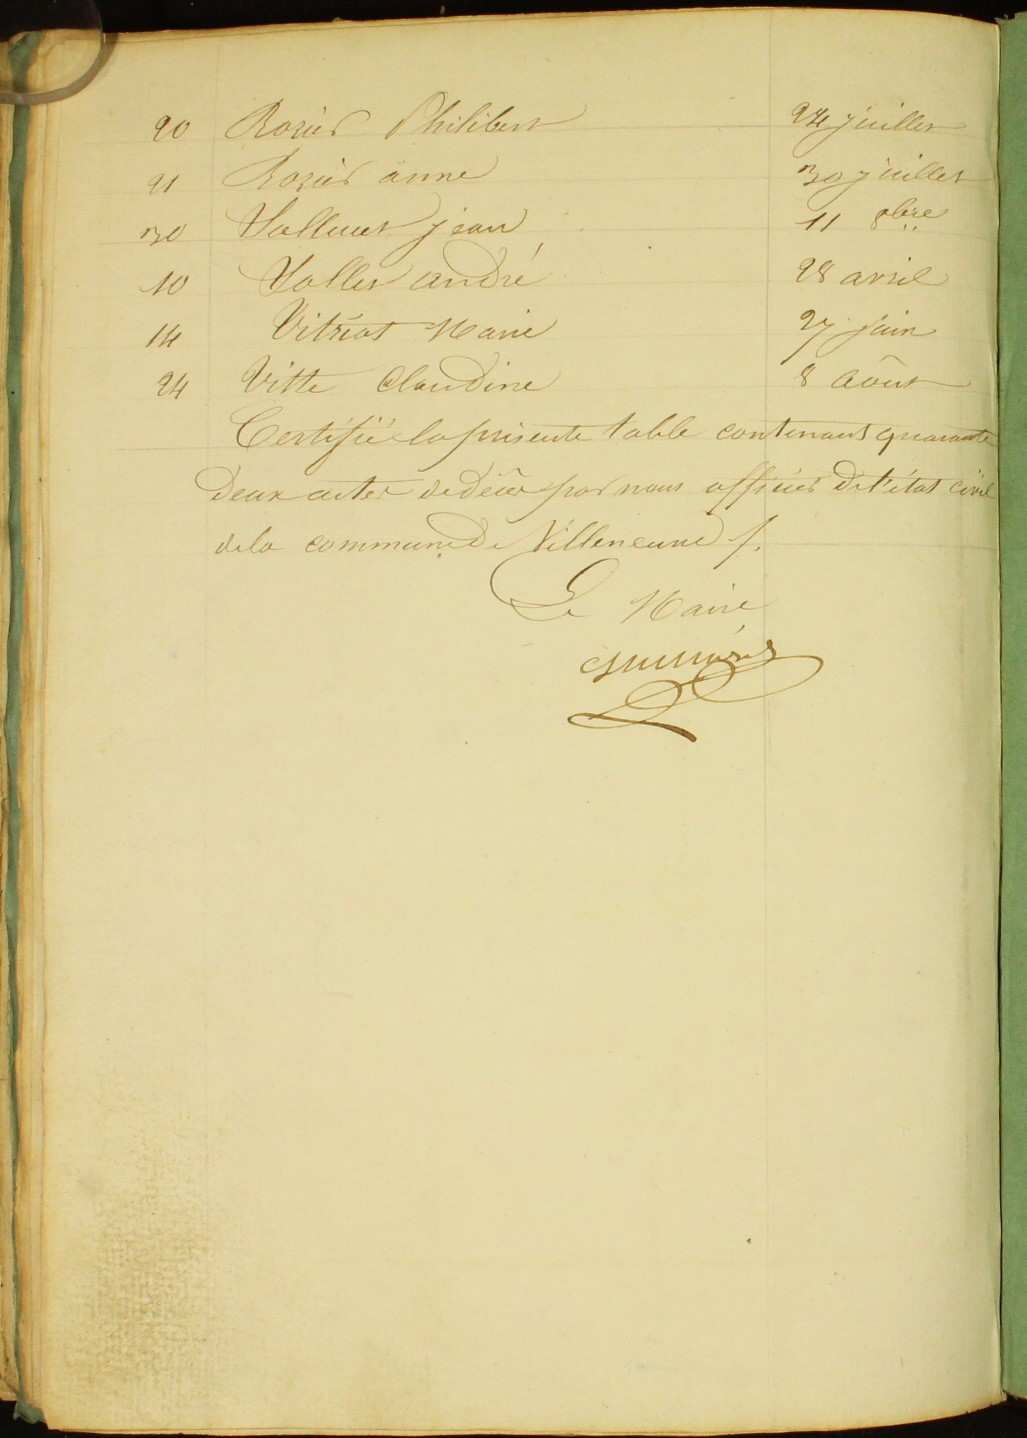 20 Rozier Philibert 24 juillet
21 Rozier anne 30 juillet
30 jean 11 8bre
10 Salles andré 28 avril
14 Marie 27 juin
24 Vitte Claudine 8 août
Certifié la présente table contenant quarante
deux actes de décès par nous officier de l'état civil
de la commune de Villeneuve /.
Le Maire